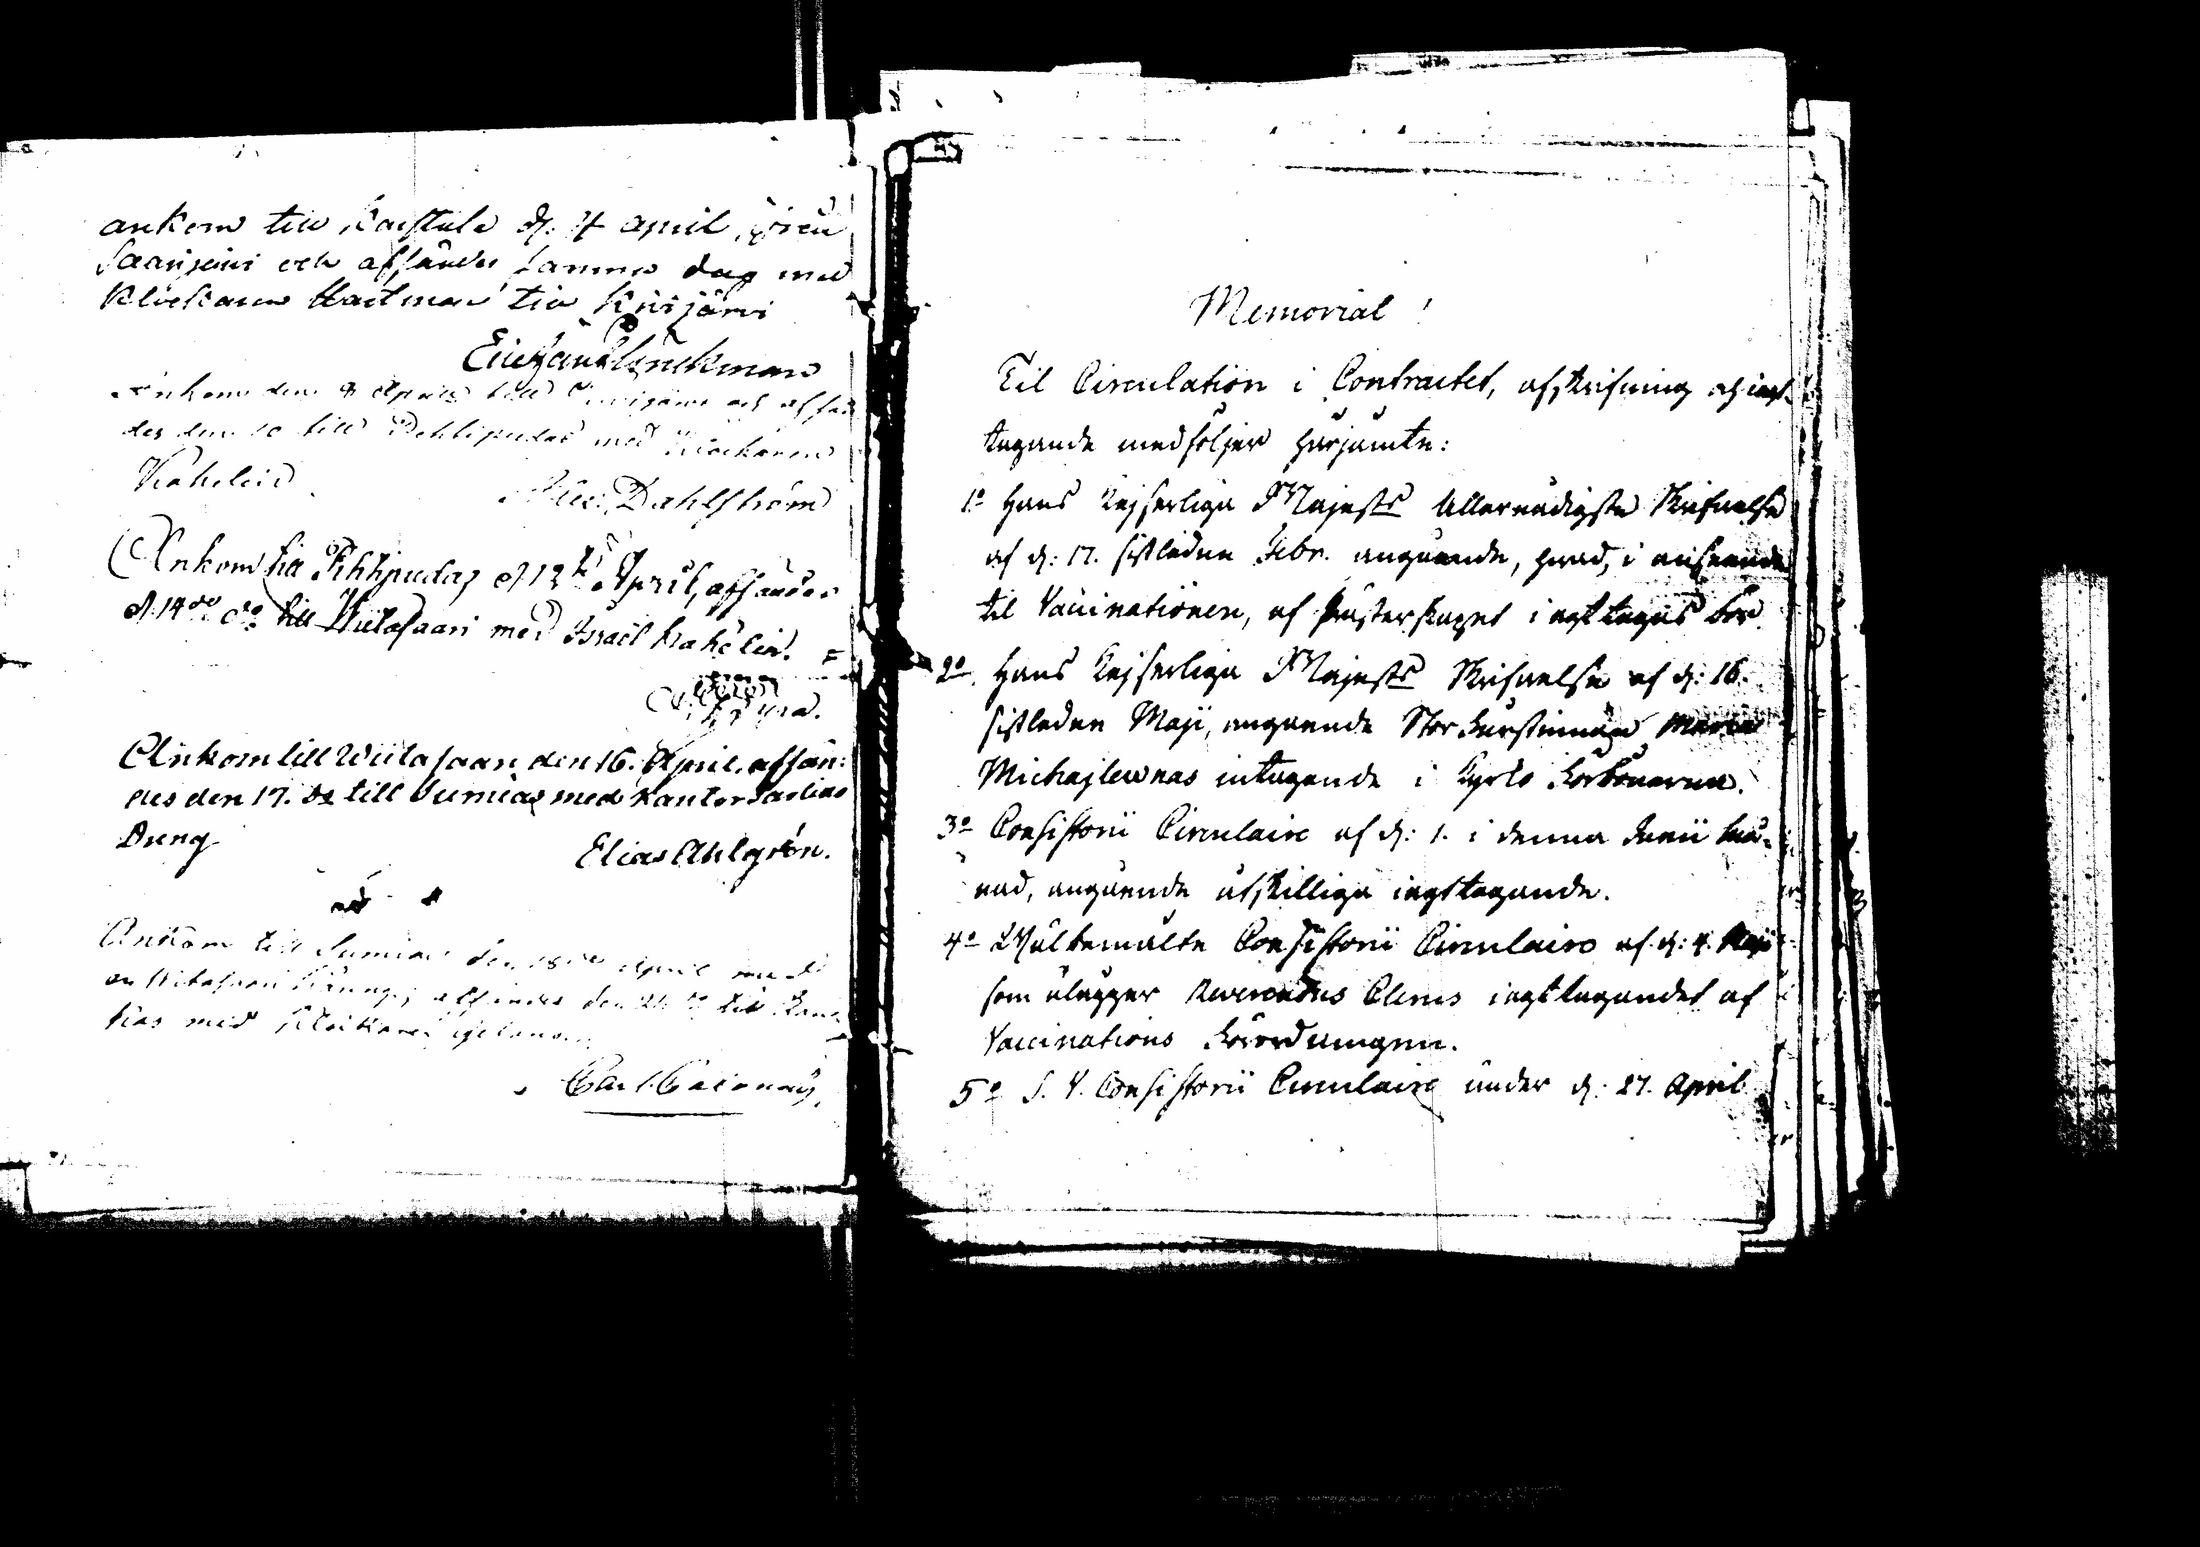 ankom till Karstula d. 4 April, från
Saarijerwi och afsändes samma dag med
Klockaren Hartman till Kivijärvi
Ankom den 8 April till Kivijärvi och afsän
des den 10 till Pihlipudas med Klockaren
Kahelin
Alex: Dahlström
Ankom till Pihlipudas d 12 April, afsändes
d. 14de do till Wiitasaari med Israël Kahelin.
Ankom till Wiitasaari den 16. April, afsän:
des den 17. do till Sumias med Kantor
Dreng
Elias Ahlgrén.
Ankom till Sumias den 18de April med
en Witasaari Dräng, afsändes den 21 do till Kan
kas med Klockaren
Carl Cajanus
Memorial!
Til Circulation i Contractet, afskrifning och iagt-
tagande medföljer härjämte:
1o Hans Kejserliga Majests Allernådigste Skrifvelse
af d: 17. sistledne Febr. angående, hvad, i anseende
til Vaccinationen, af Presterskapet iagttagas bör.
2o Hans Kejserliga Majests Skrifvelse af d: 16.
sistleden Maji, angående Stor Furstinnan Maria
Michajlewnas intagande i Kyrko Förbönerna.
3o Consistorii Circulaire af d: 1. i denna Junii må-
nad, angående åtskilliga iagttagande.
4o Wälbemälte Consistorii Circulaire af d: 4. Maji
som ålägger Reverendus Clerus iagttagandet af
Vaccinations Förordningen.
5o S. V. Consistorii Circulaire under d: 27. April